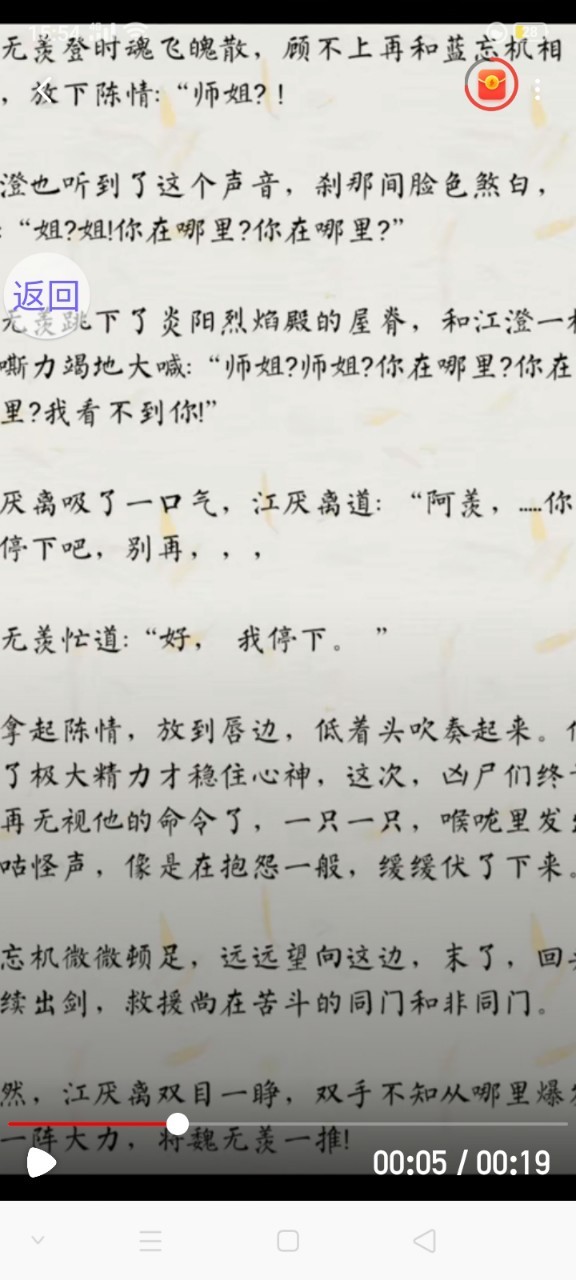 15:54
28
无羡登时魂飞魄散，顾不上再和蓝忘机相
，放下陈情：“师姐？！
澄也听到了这个声音，刹那间脸色煞白，
：“姐？姐！你在哪里？你在哪里？”
返回
无羡跳下了炎阳烈焰殿的屋脊，和江澄一
嘶力竭地大喊：“师姐？师姐？你在哪里？你在
里？我看不到你！”
厌离吸了一口气，江厌离道：“阿羡，……你
停下吧，别再，，，
无羡忙道：“好， 我停下。 ”
拿起陈情，放到唇边，低着头吹奏起来。
了极大精力才稳住心神，这次，凶尸们终
再无视他的命令了，一只一只，喉咙里发
咕怪声，像是在抱怨一般，缓缓伏了下来。
忘机微微顿足，远远望向这边，末了，回
续出剑，救援尚在苦斗的同门和非同门。
然，江厌离双目一睁，双手不知从哪里爆发
一阵大力，将魏无羡一推！
00:05 / 00:19